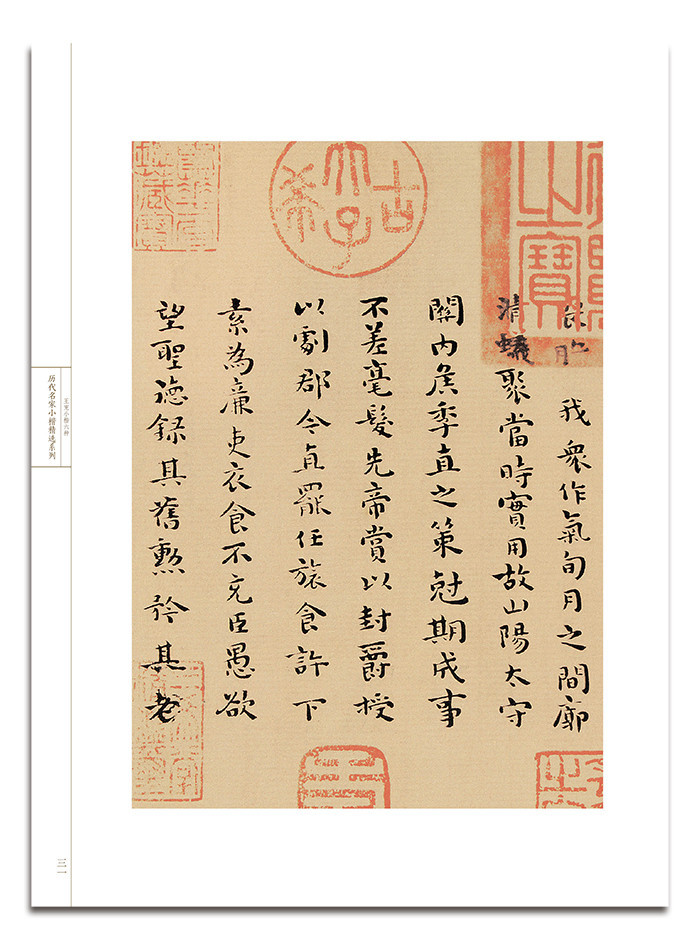 我眾作氣旬月之間廓
清蟻聚當時實用故山陽太守
關內侯季直之策尅期成事
不差毫髮先帝賞以封爵授
以劇郡今直罷任旅食許下
素為廉吏衣食不充臣愚欲
望聖德錄其舊勲矜其老
古希天子
王宠小楷六种
历代名家小楷精选系列
三一